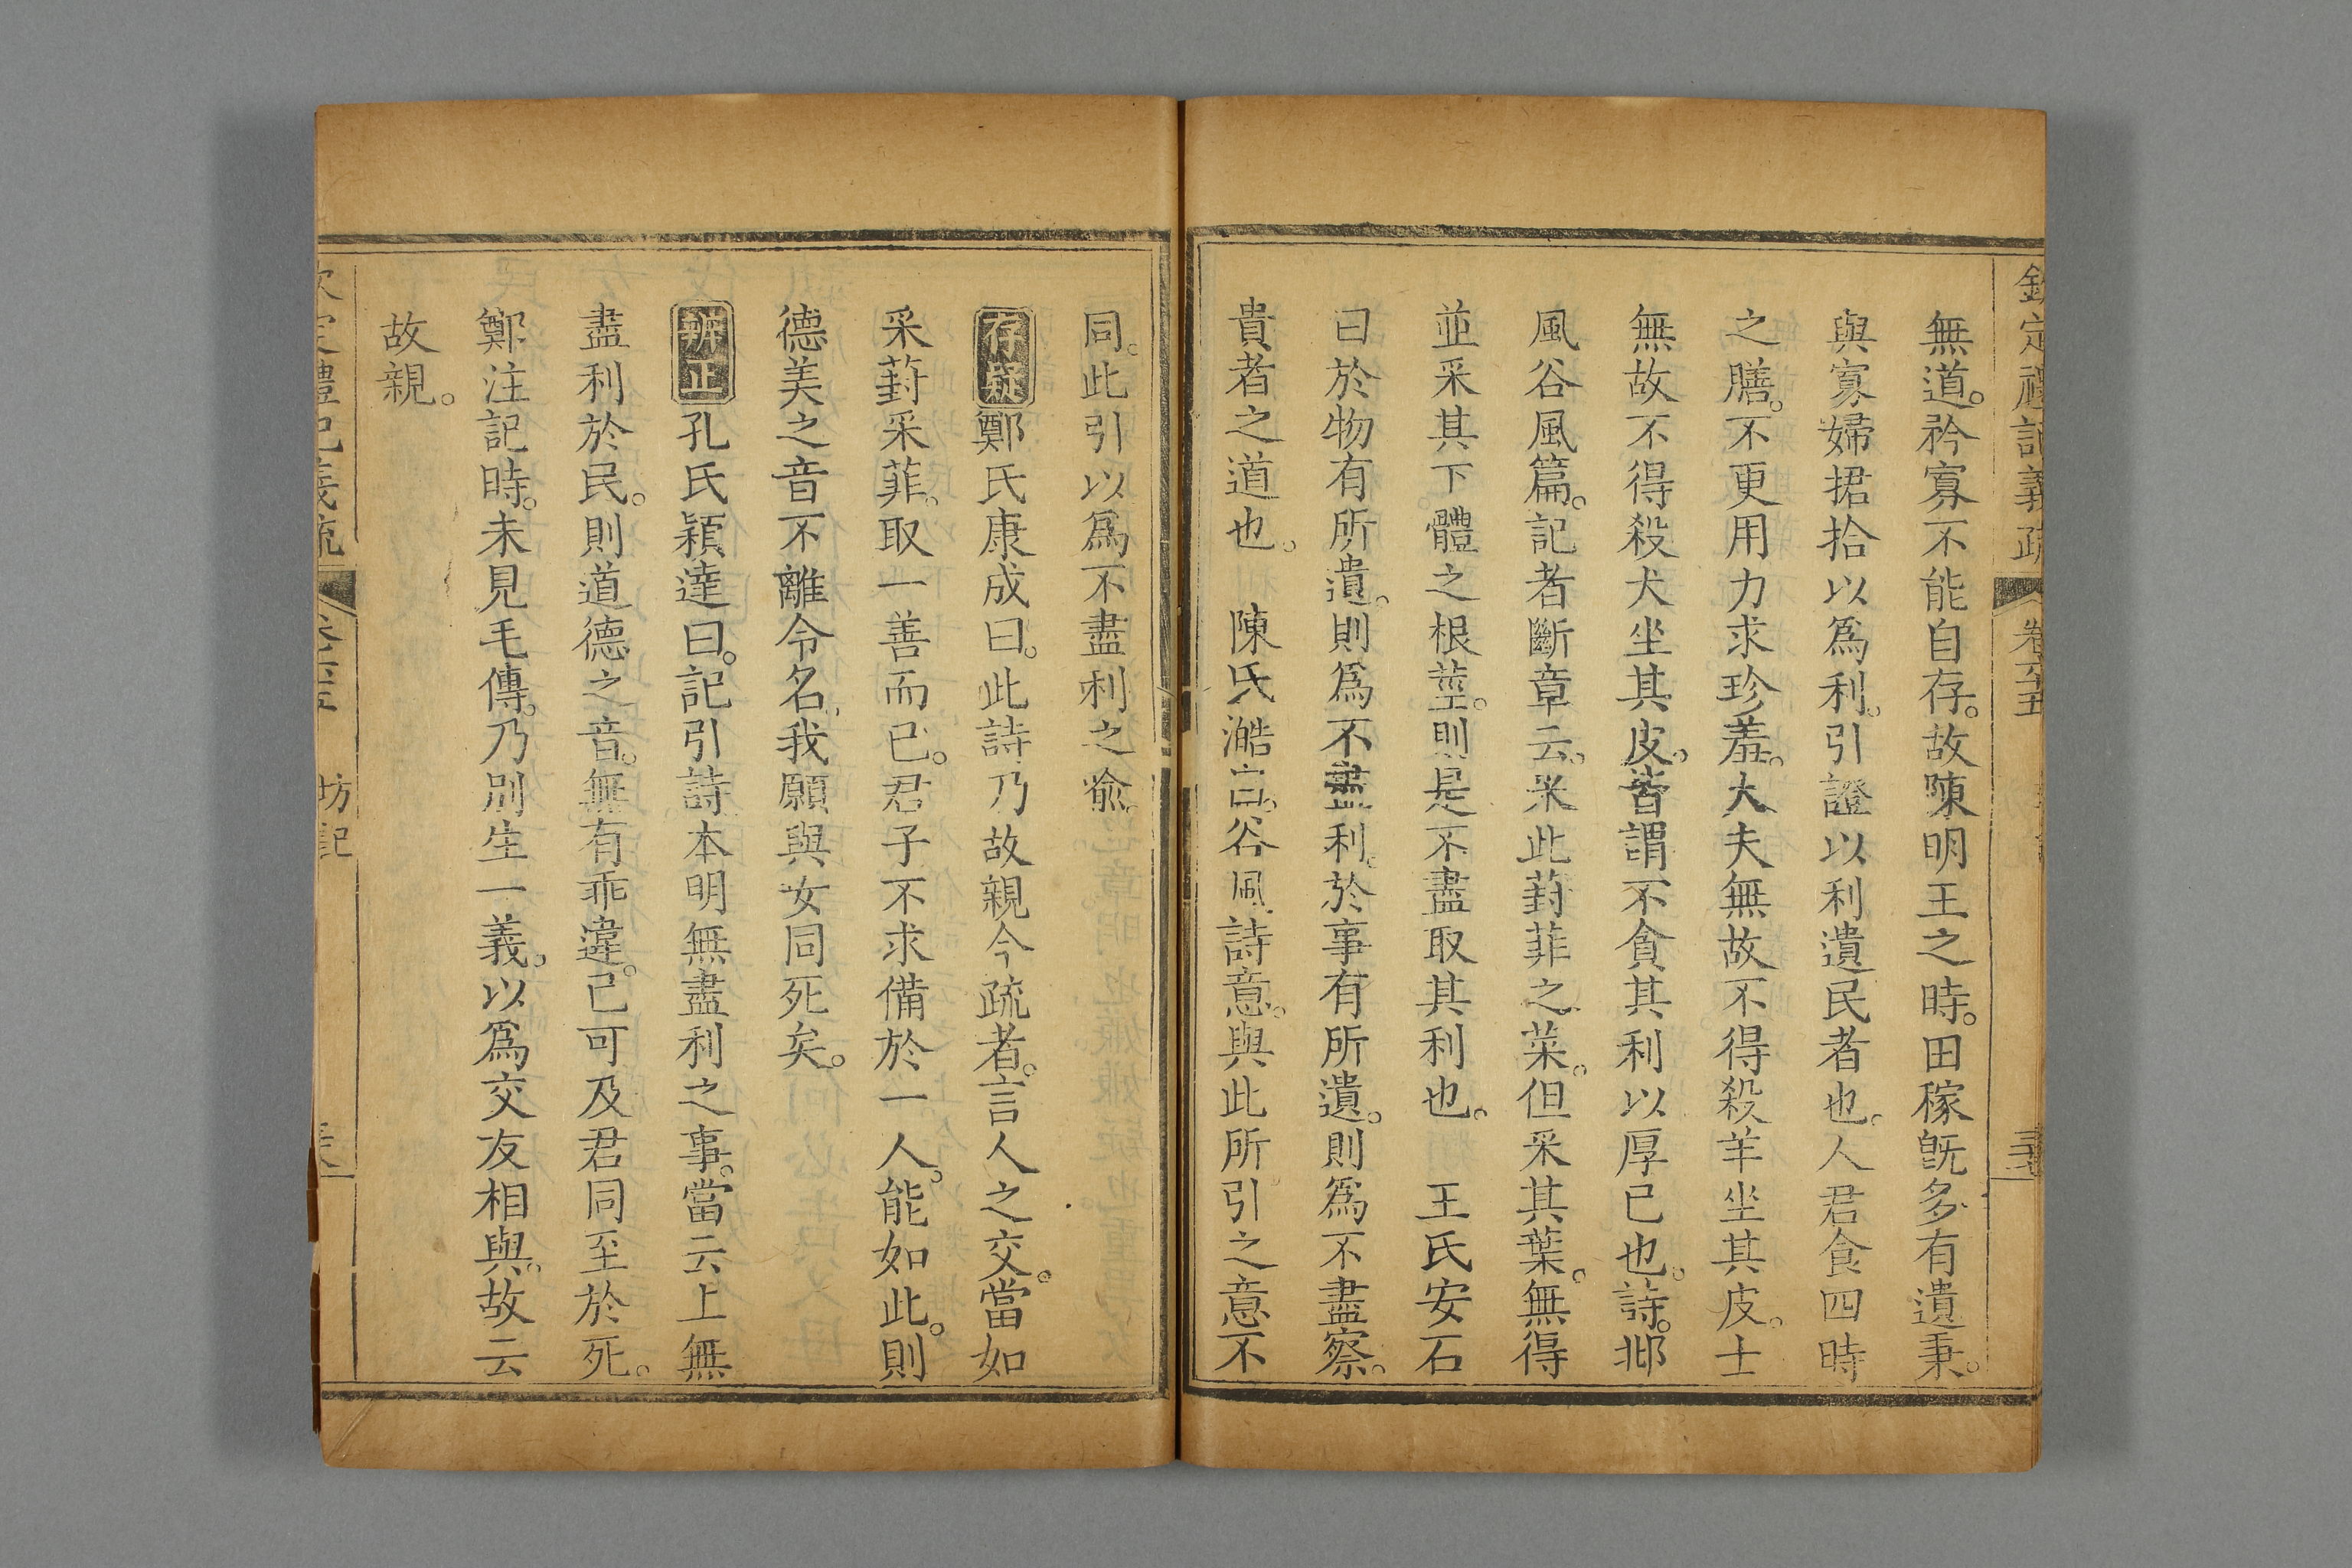 欽定禮記義疏 卷六十五
無道。矜寡不能自存。故陳明王之時。田稼旣多有遺秉。
與寡婦捃拾以爲利。引證以利遺民者也。人君食四時
之膳。不更用力求珍羞。大夫無故不得殺羊坐其皮。士
無故不得殺犬坐其皮。皆謂不貪其利以厚己也。詩。邶
風谷風篇。記者斷章云。采此葑菲之菜。但采其葉。無得
並采其下體之根莖。則是不盡取其利也。 王氏安石
曰於物有所遺。則爲不盡利。於事有所遺。則爲不盡察。
貴者之道也。 陳氏澔曰。谷風詩意。與此所引之意不
同。此引以爲不盡利之喻。
存疑 鄭氏康成曰。此詩乃故親今疏者。言人之交。當如
采葑采菲。取一善而已。君子不求備於一人。能如此。則
德美之音不離令名。我願與女同死矣。
辨正 孔氏穎達曰。記引詩本明無盡利之事。當云上無
盡利於民。則道德之音。無有乖違。己可及君同至於死。
鄭注記時。未見毛傳。乃別生一義。以爲交友相與。故云
故親。
欽定禮記義疏 坊記